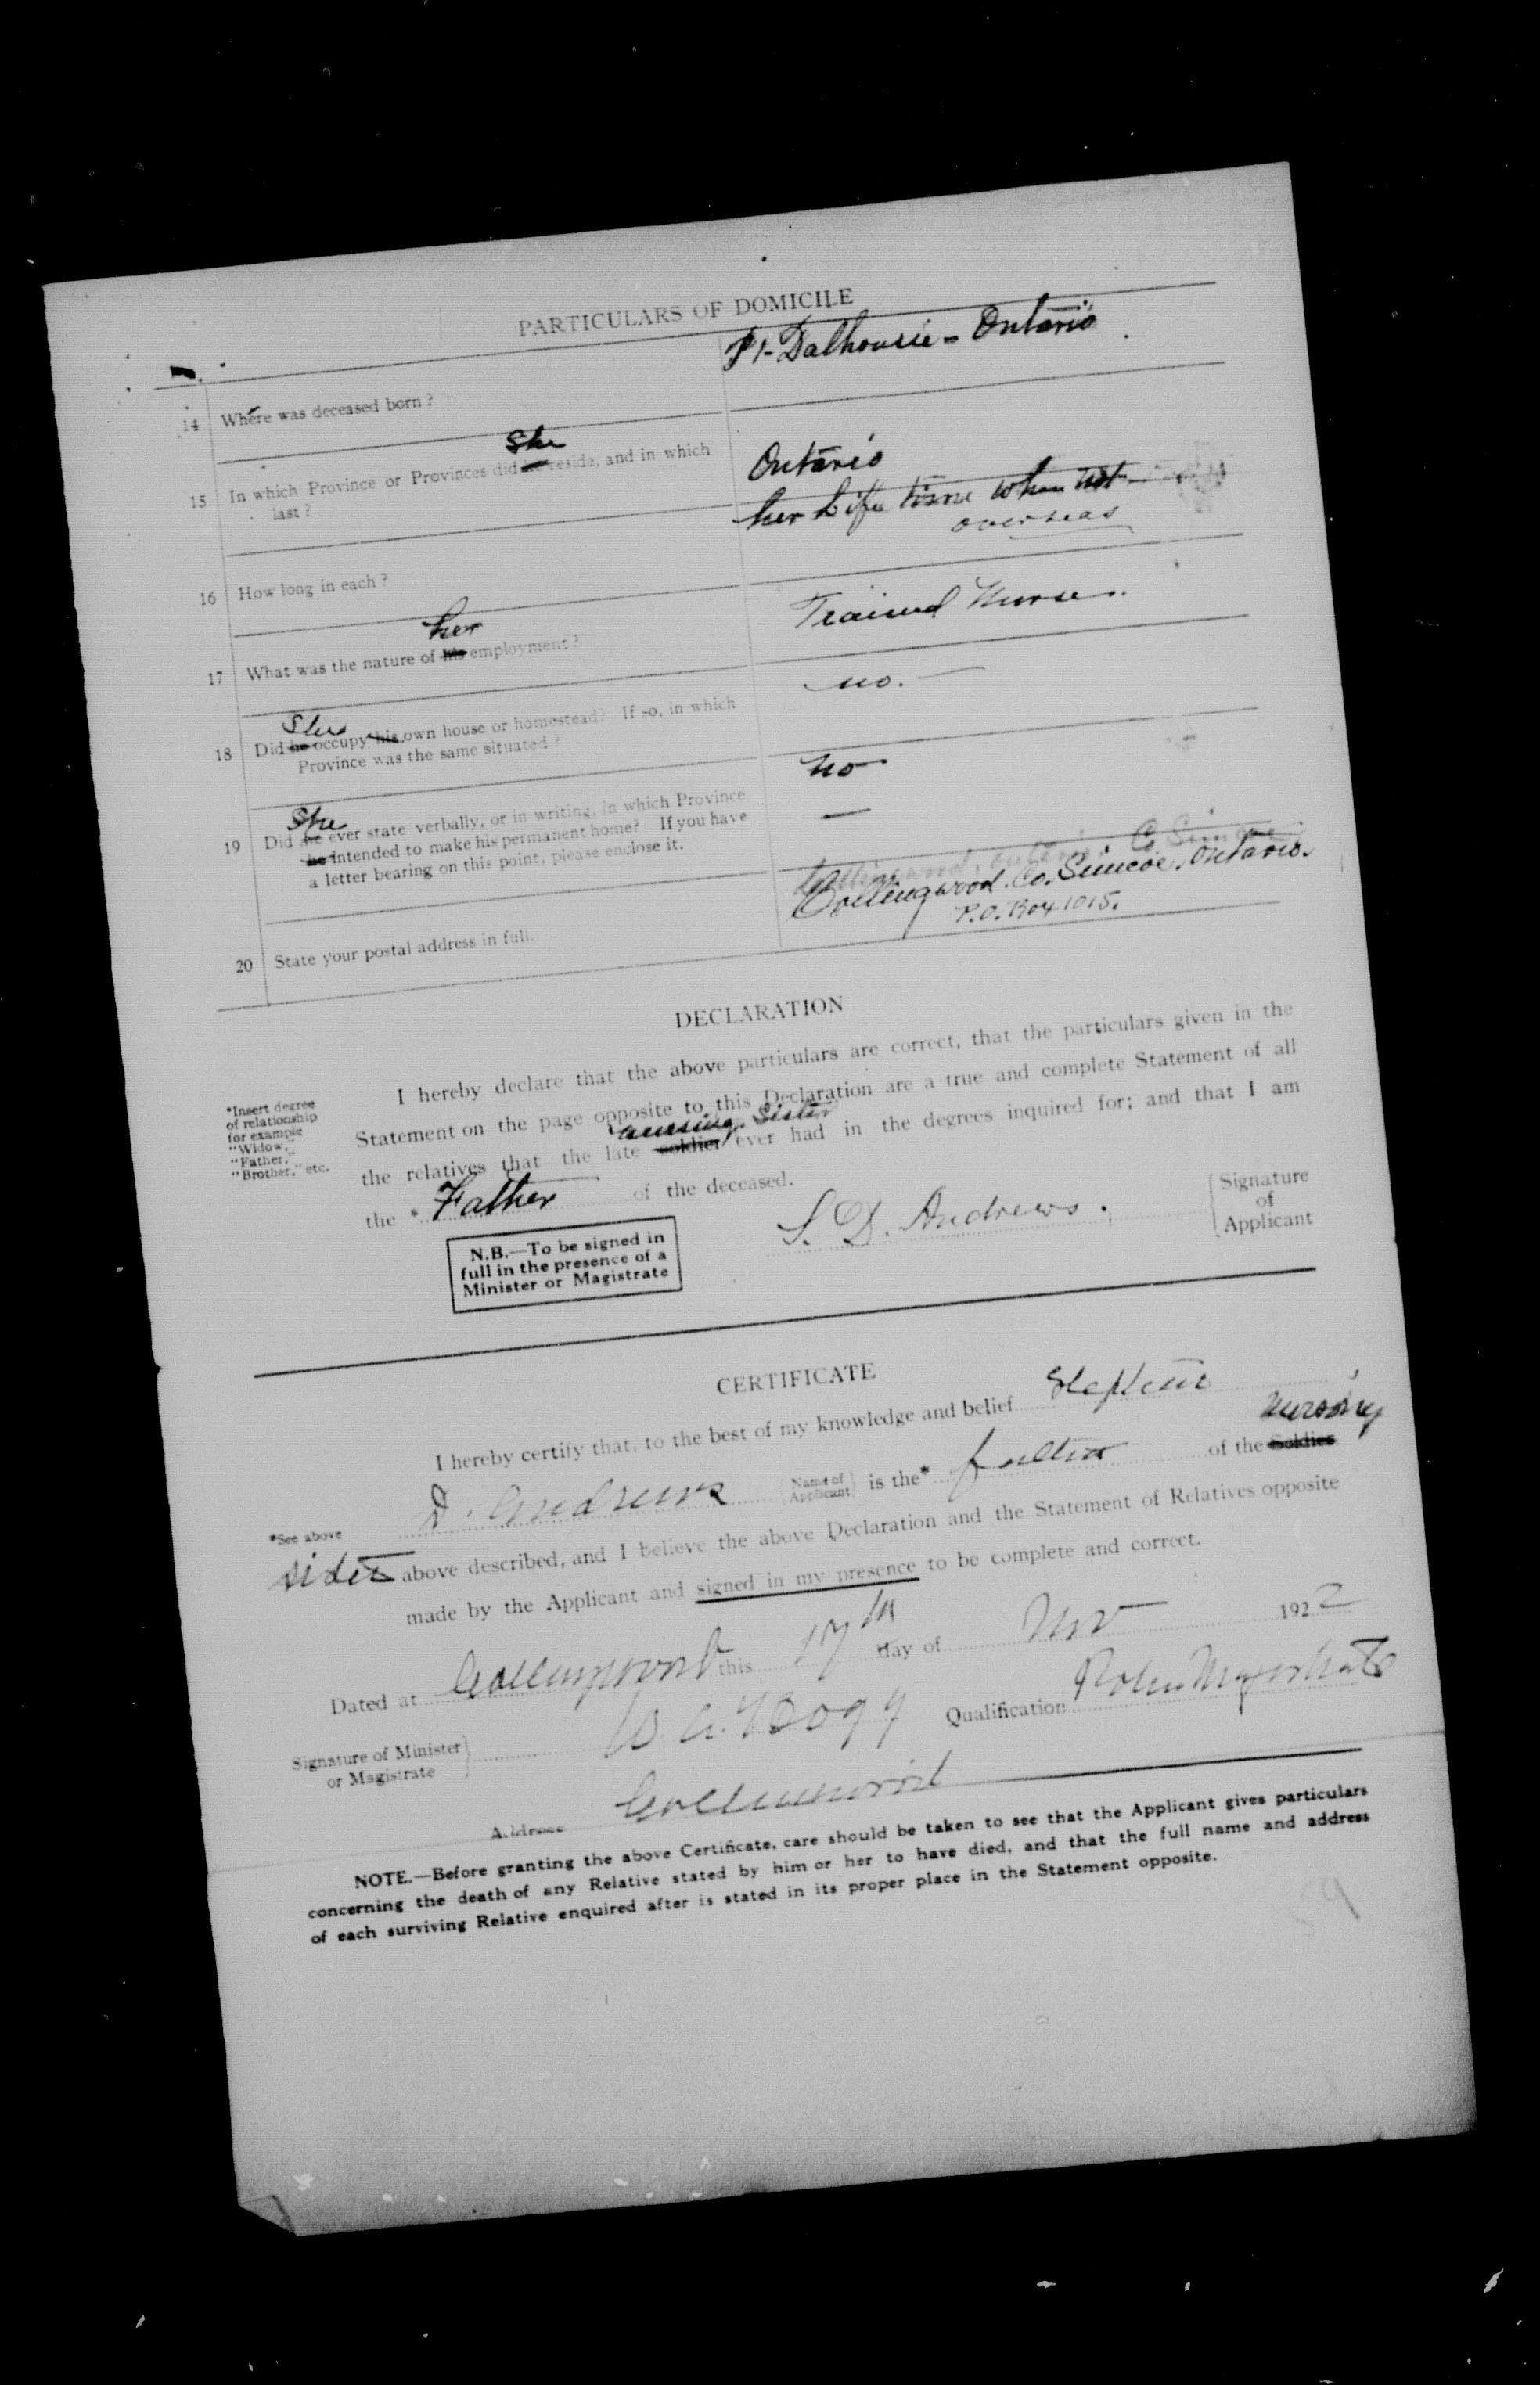 PARTICULARS OF DOMICILE
Pt-Dalhousie - Ontario
14 Where was deceased born?
she
15 In which Province or Provinces did he reside, and in which
last?
Ontario
her Life time when not
overseas
16 How long in each?
her
17 What was the nature of his employment?
Trained Nurse.
She
18 Did he occupy his own house or homestead? If so, in which
Province was the same situated?
no.
She
19 Did he ever state verbally, or in writing, in which Province
he intended to make his permanent home? If you have
a letter bearing on this point, please enclose it.
no
—
Collingwood. Co. Simcoe. Ontario.
P.O. Box 1015.
20 State your postal address in full.
DECLARATION
I hereby declare that the above particulars are correct, that the particulars given in the
Statement on the page opposite to this Declaration are a true and complete Statement of all
nursing Sister
the relatives that the late soldier ever had in the degrees inquired for; and that I am
the * Father of the deceased.
*Insert degree
of relationship
for example
"Widow,"
"Father,"
"Brother," etc.
S. D. Andrews.
Signature
of
Applicant
N.B.—To be signed in
full in the presence of a
Minister or Magistrate
CERTIFICATE
I hereby certify that, to the best of my knowledge and belief Stephen
Nursing
D. Andrews Name of Applicant is the* father of the Soldier
*See above
sister above described, and I believe the above Declaration and the Statement of Relatives opposite
made by the Applicant and signed in my presence to be complete and correct.
Dated at Collingwood this 17th day of Nov 1922
Signature of Minister
or Magistrate
W. A. Hogg Qualification Police Magistrate
Address Collingwood
NOTE.—Before granting the above Certificate, care should be taken to see that the Applicant gives particulars
concerning the death of any Relative stated by him or her to have died, and that the full name and address
of each surviving Relative enquired after is stated in its proper place in the Statement opposite.